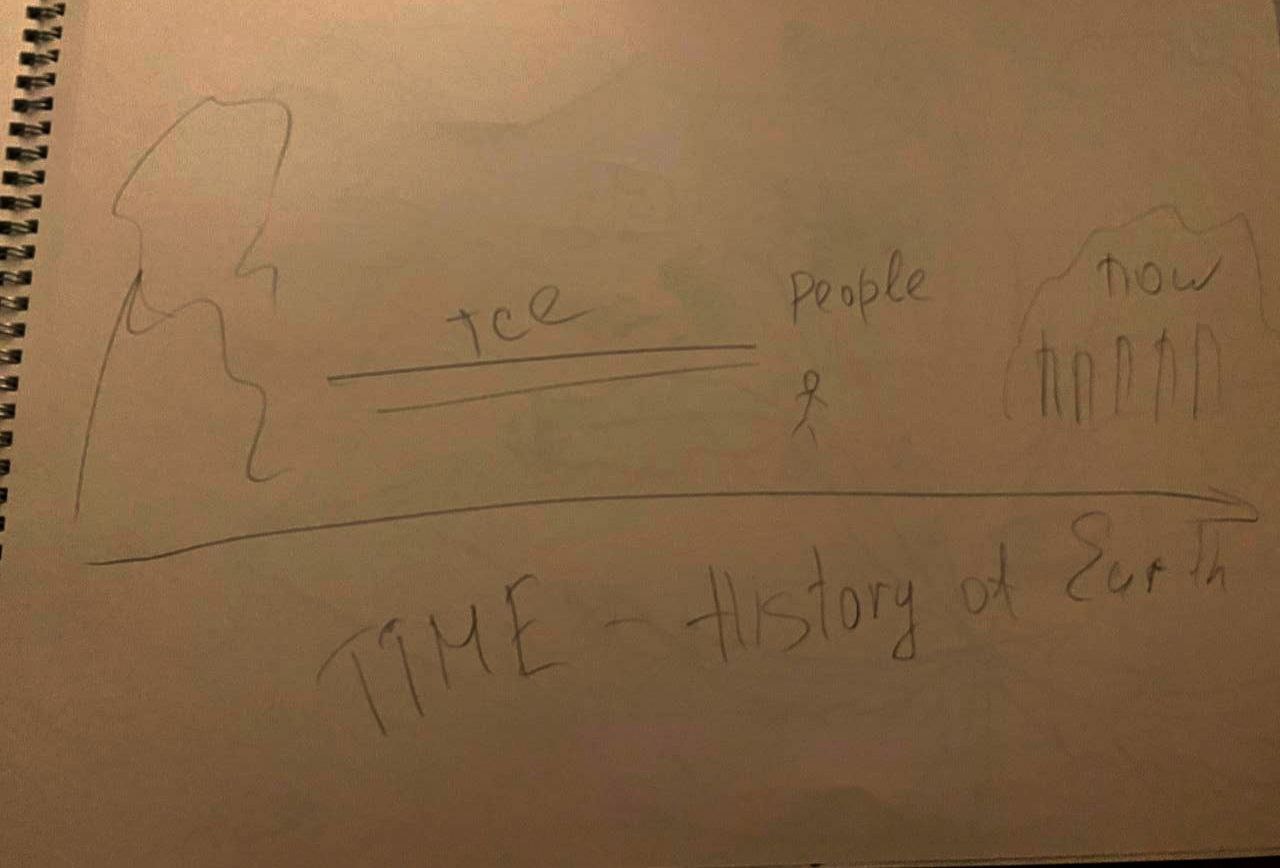 Ice
People
now
TIME - History of Earth